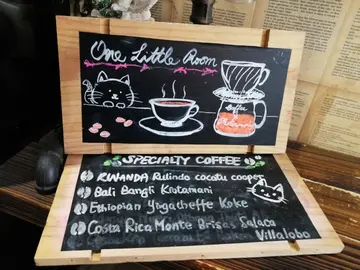 One Little Room
Coffee
SPECIALTY COFFEE
RWANDA Rulindo cocatu cooper
Bali Bangli Kintamani
Ethiopian Yirgacheffe Koke
Costa Rica Monte Brisas Salaca
Villalobo